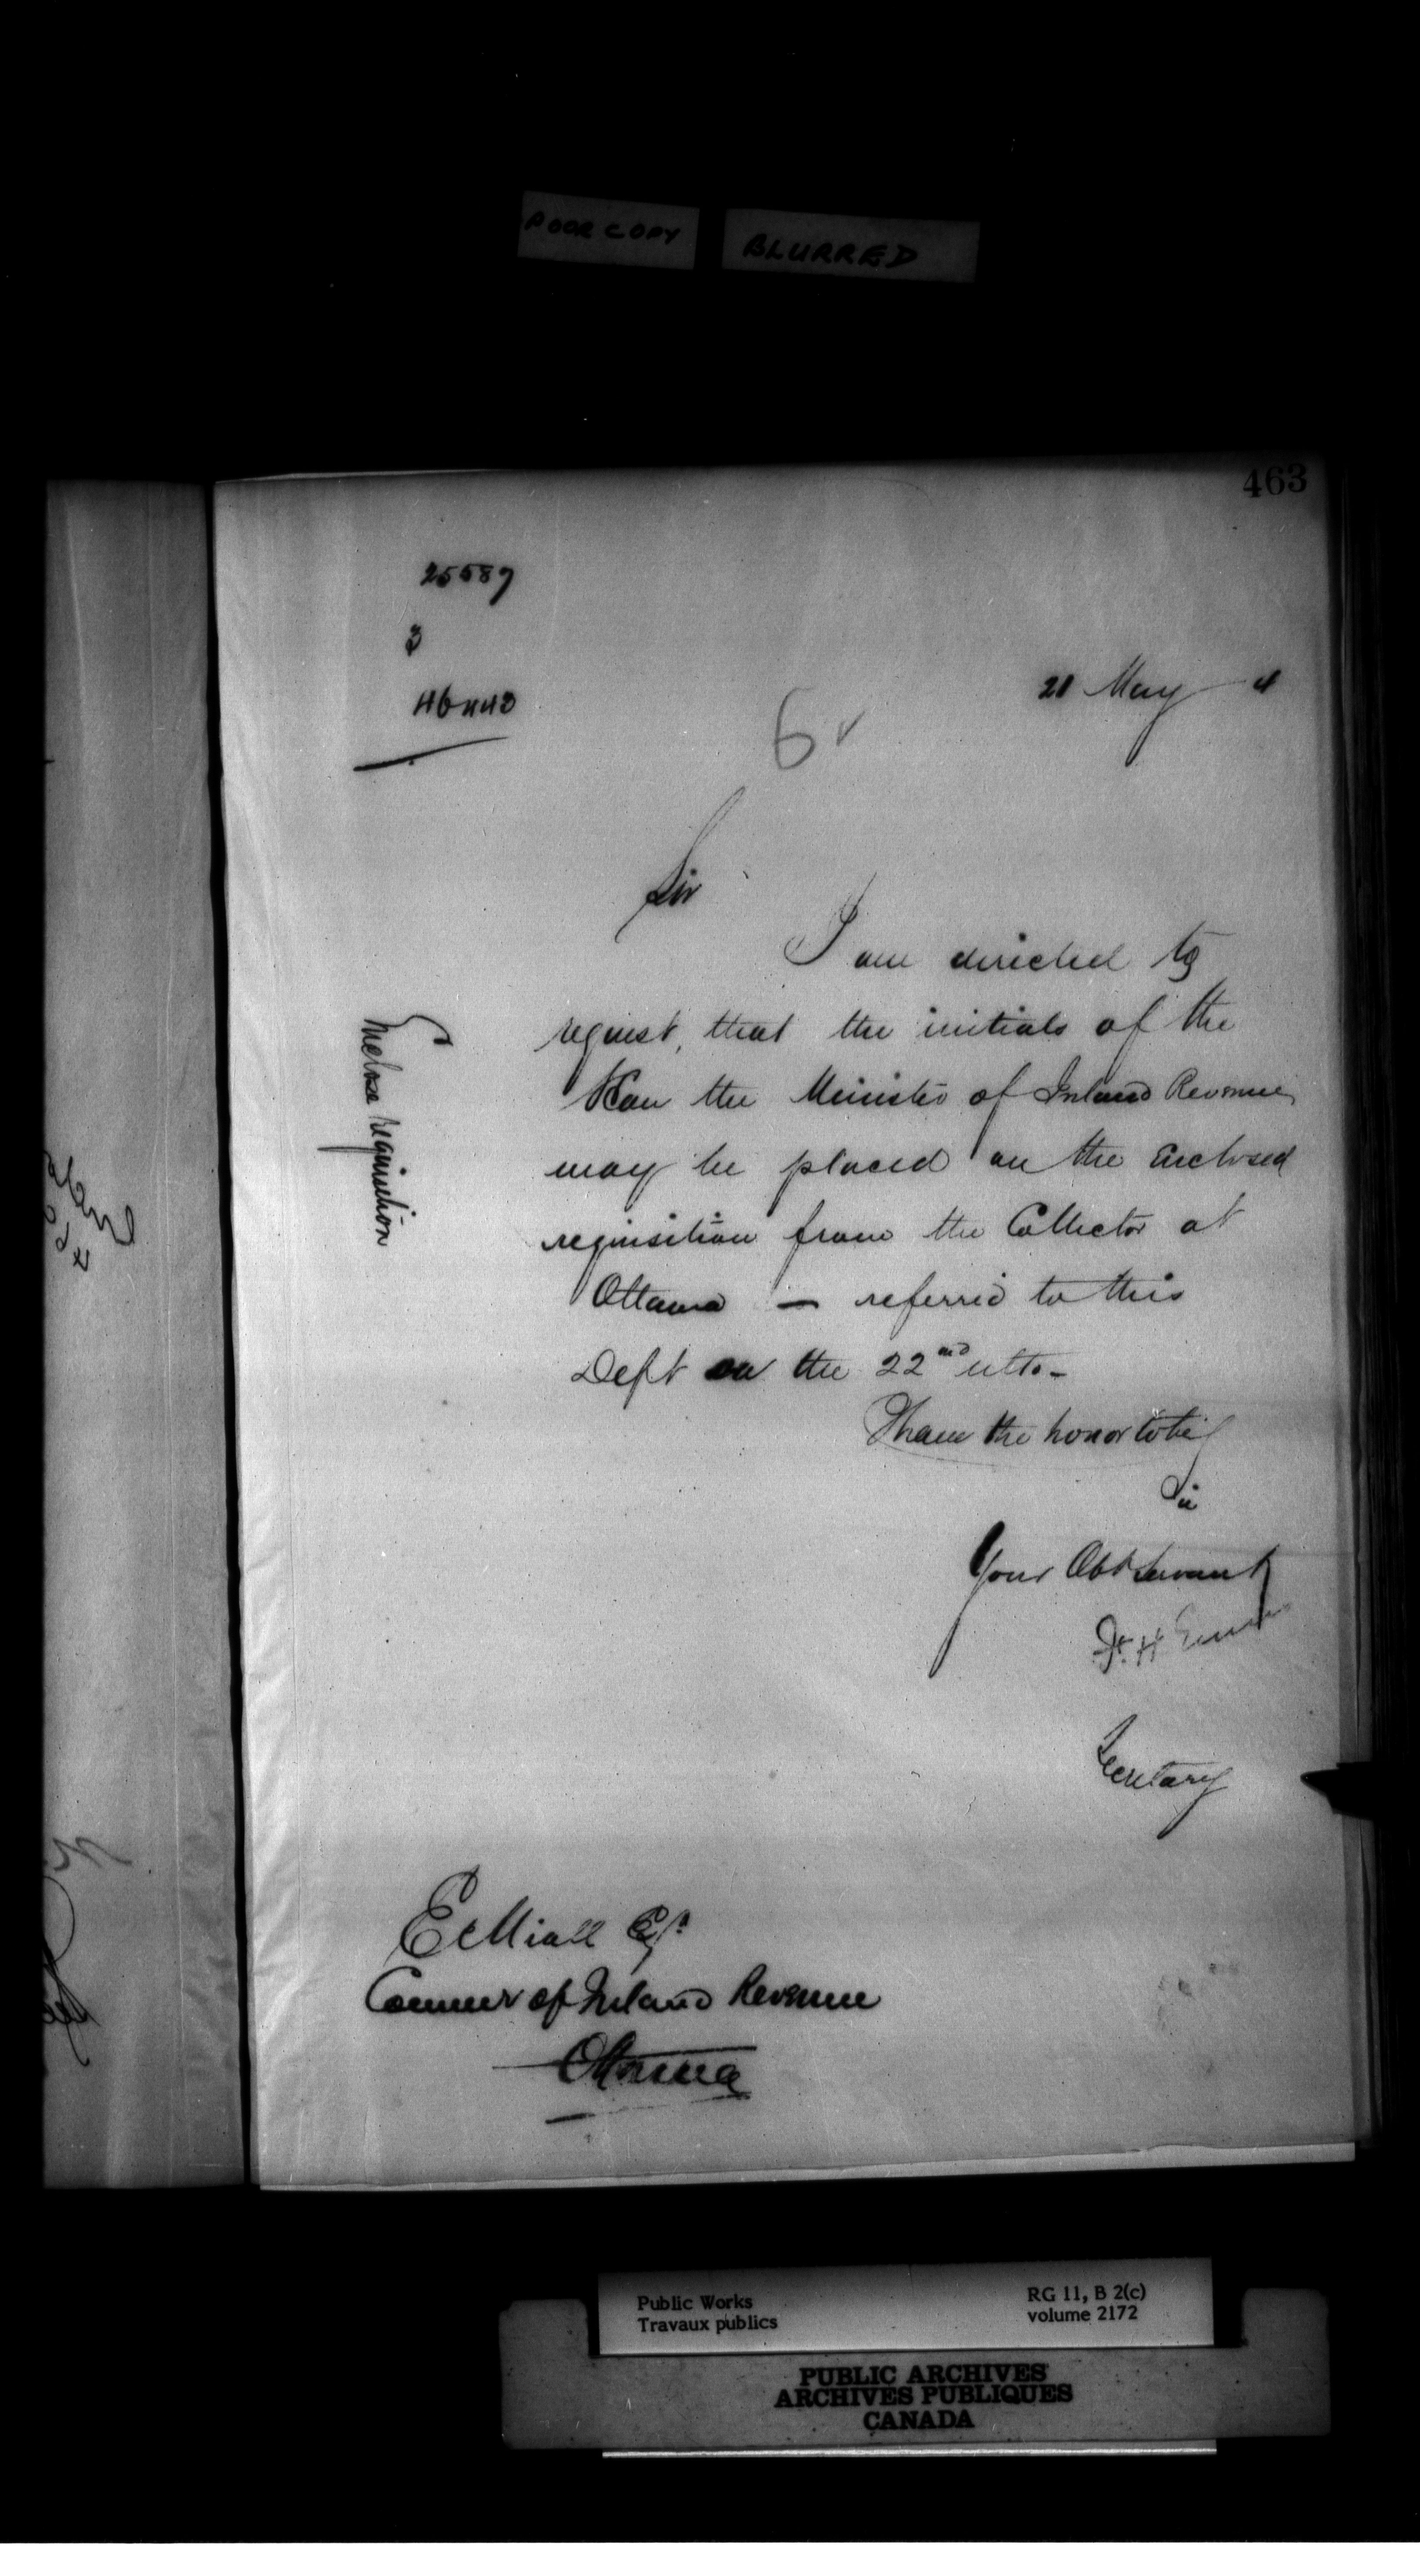 POOR COPY BLURRED
463
25587
3
46443
21 May 4
6 ✓
Sir
I am directed to
request, that the initials of the
Hon the Minister of Inland Revenue
may be placed on the enclosed
requisition from the Collector at
Ottawa — referred to this
Dept on the 22nd ulto -
Enclose requisition
I have the honor to be
Sir
Your Obt Servant
F. H. Ennis
Secretary
E Miall Esq.
Commr of Inland Revenue
Ottawa
Public Works
Travaux publics
RG 11, B 2(c)
volume 2172
PUBLIC ARCHIVES
ARCHIVES PUBLIQUES
CANADA